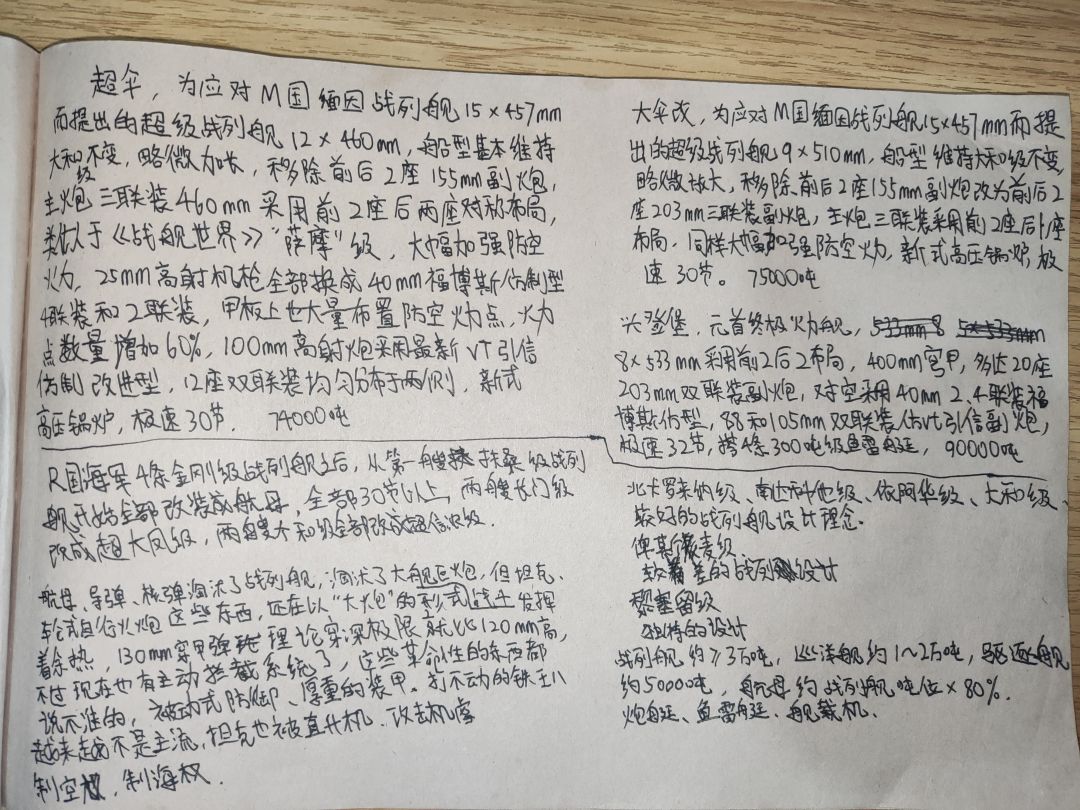 超伞，为应对M国缅因战列舰15×457mm
而提出的超级战列舰12×460mm，船型基本维持
大和级不变，略微加长，移除前后2座155mm副炮，
主炮三联装460mm采用前2座后两座对称布局，
类似于《战舰世界》“萨摩”级，大幅加强防空
火力，25mm高射机枪全部换成40mm福博斯仿制型
4联装和2联装，甲板上也大量布置防空火力点，火力
点数量增加60%，100mm高射炮采用最新VT引信
仿制改进型，12座双联装均匀分布于两侧，新式
高压锅炉，极速30节．74000吨
R国海军4条金刚级战列舰之后，从第一艘扶桑级战列
舰开始全部改装成航母，全部30节以上，两艘长门级
改成超大凤级，两艘大和级全部改成超信浓级．
航母、导弹、核弹淘汰了战列舰，淘汰了大舰巨炮，但坦克、
轮式自行火炮这些东西，还在以“大炮”的形式战斗发挥
着余热，130mm穿甲弹理论穿深极限就比120mm高，
不过现在也有主动拦截系统了，这些革命性的东西都
说不准的，被动式防御、厚重的装甲．打不动的铁王八
越来越不是主流，坦克也被直升机、攻击机虐
制空权，制海权．
大伞改，为应对M国缅因战列舰15×457mm而提
出的超级战列舰9×510mm，船型维持大和级不变，
略微放大，移除前后2座155mm副炮改为前后2
座203mm三联装副炮，主炮三联装采用前2座后1座
布局，同样大幅加强防空火力，新式高压锅炉，极
速30节。75000吨
兴登堡，元首终极火力舰，
8×533mm采用前2后2布局，400mm宫甲，多达20座
203mm双联装副炮，对空采用40mm 2、4联装福
博斯仿型，88和105mm双联装仿vt引信副炮，
极速32节，搭4条300吨级鱼雷艇，90000吨
北卡罗来纳级、南达科他级、依阿华级、大和级、
较好的战列舰设计理念．
俾斯麦级
较差的战列舰设计
黎塞留级
独特的设计
战列舰约≥3万吨，巡洋舰约1～2万吨，驱逐舰
约5000吨，航母约战列舰吨位×80%．
炮艇、鱼雷艇、舰载机．